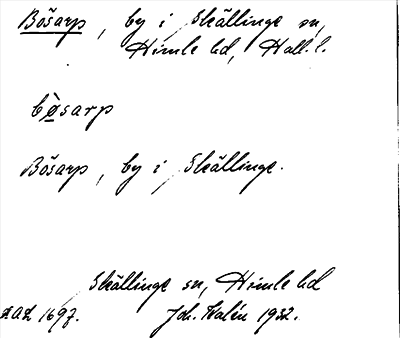 Bösarp, by i Skällinge sn,
Himle hd, Hall. l.
bø̀sarp
Bösarp, by i Skällinge.
Skällinge sn, Himle hd
LAL 1697. Joh. Kalén 1932.